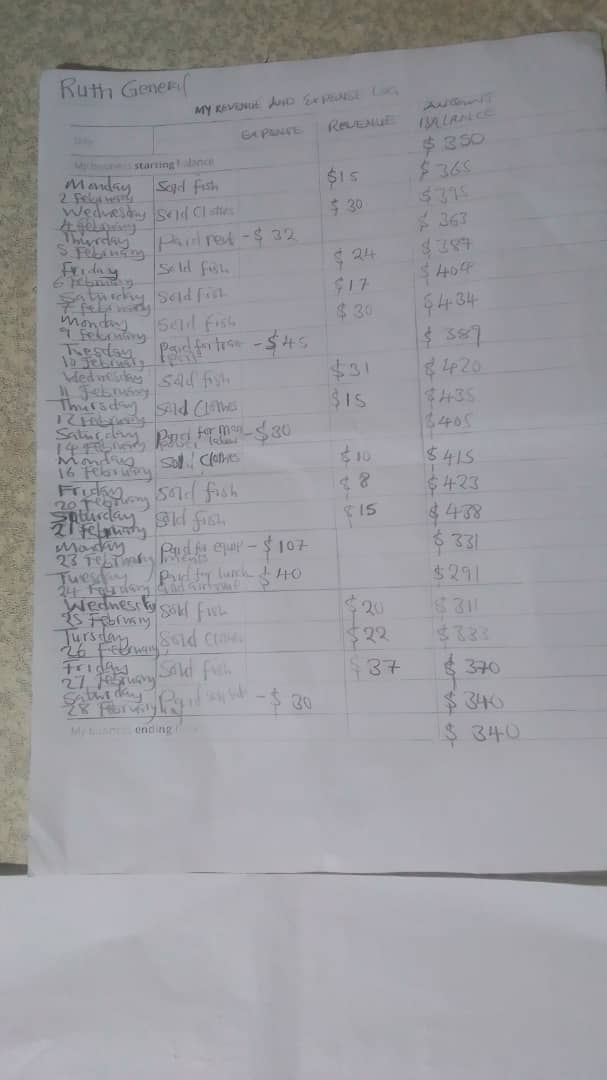 Ruth General
MY REVENUE AND EXPENSE LOG
EXPENSE REVENUE ACCOUNT BALANCE
My business starting balance $ 350
Monday 2 February Sold fish $15 $ 365
Wednesday 4 February Sold Clothes $ 30 $ 395
Thursday 5 February Paid rent - $ 32 $ 363
Friday 6 February Sold fish $ 24 $ 387
Saturday 7 February Sold fish $ 17 $ 404
Monday 9 February Sold fish $ 30 $ 434
Tuesday 10 February Paid for - $ 45 $ 389
Wednesday 11 February Sold fish $ 31 $ 420
Thursday 12 February Sold Clothes $ 15 $ 435
Saturday 14 February Paid for - $30 $ 405
Monday 16 February Sold Clothes $ 10 $ 415
Friday 20 February Sold fish $ 8 $ 423
Saturday 21 February Sold fish $ 15 $ 438
Monday 23 February Paid for equipments - $ 107 $ 331
Tuesday 24 February Paid for lunch and airtime $ 40 $ 291
Wednesday 25 February Sold fish $ 20 $ 311
Tursday 26 February Sold Clothes $ 22 $ 333
Friday 27 February Sold fish $ 37 $ 370
Saturday 28 February Paid - $ 30 $ 340
My business ending $ 340